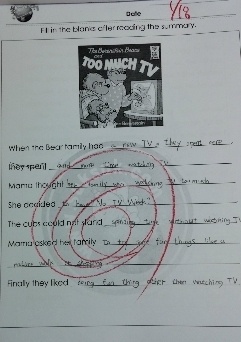 Date 1/18
Fill in the blanks after reading the summary.
The Berenstain Bears
and
TOO MUCH TV
When the Bear family had a new TV, they spent more
they spent and more time watching TV
Mama thought the family was watching TV too much
She decided to have "No TV Week"
The cubs could not stand spending time without watching TV
Mama asked her family to try out fun things like a
nature walk or shopping
Finally they liked doing fun thing other than watching TV